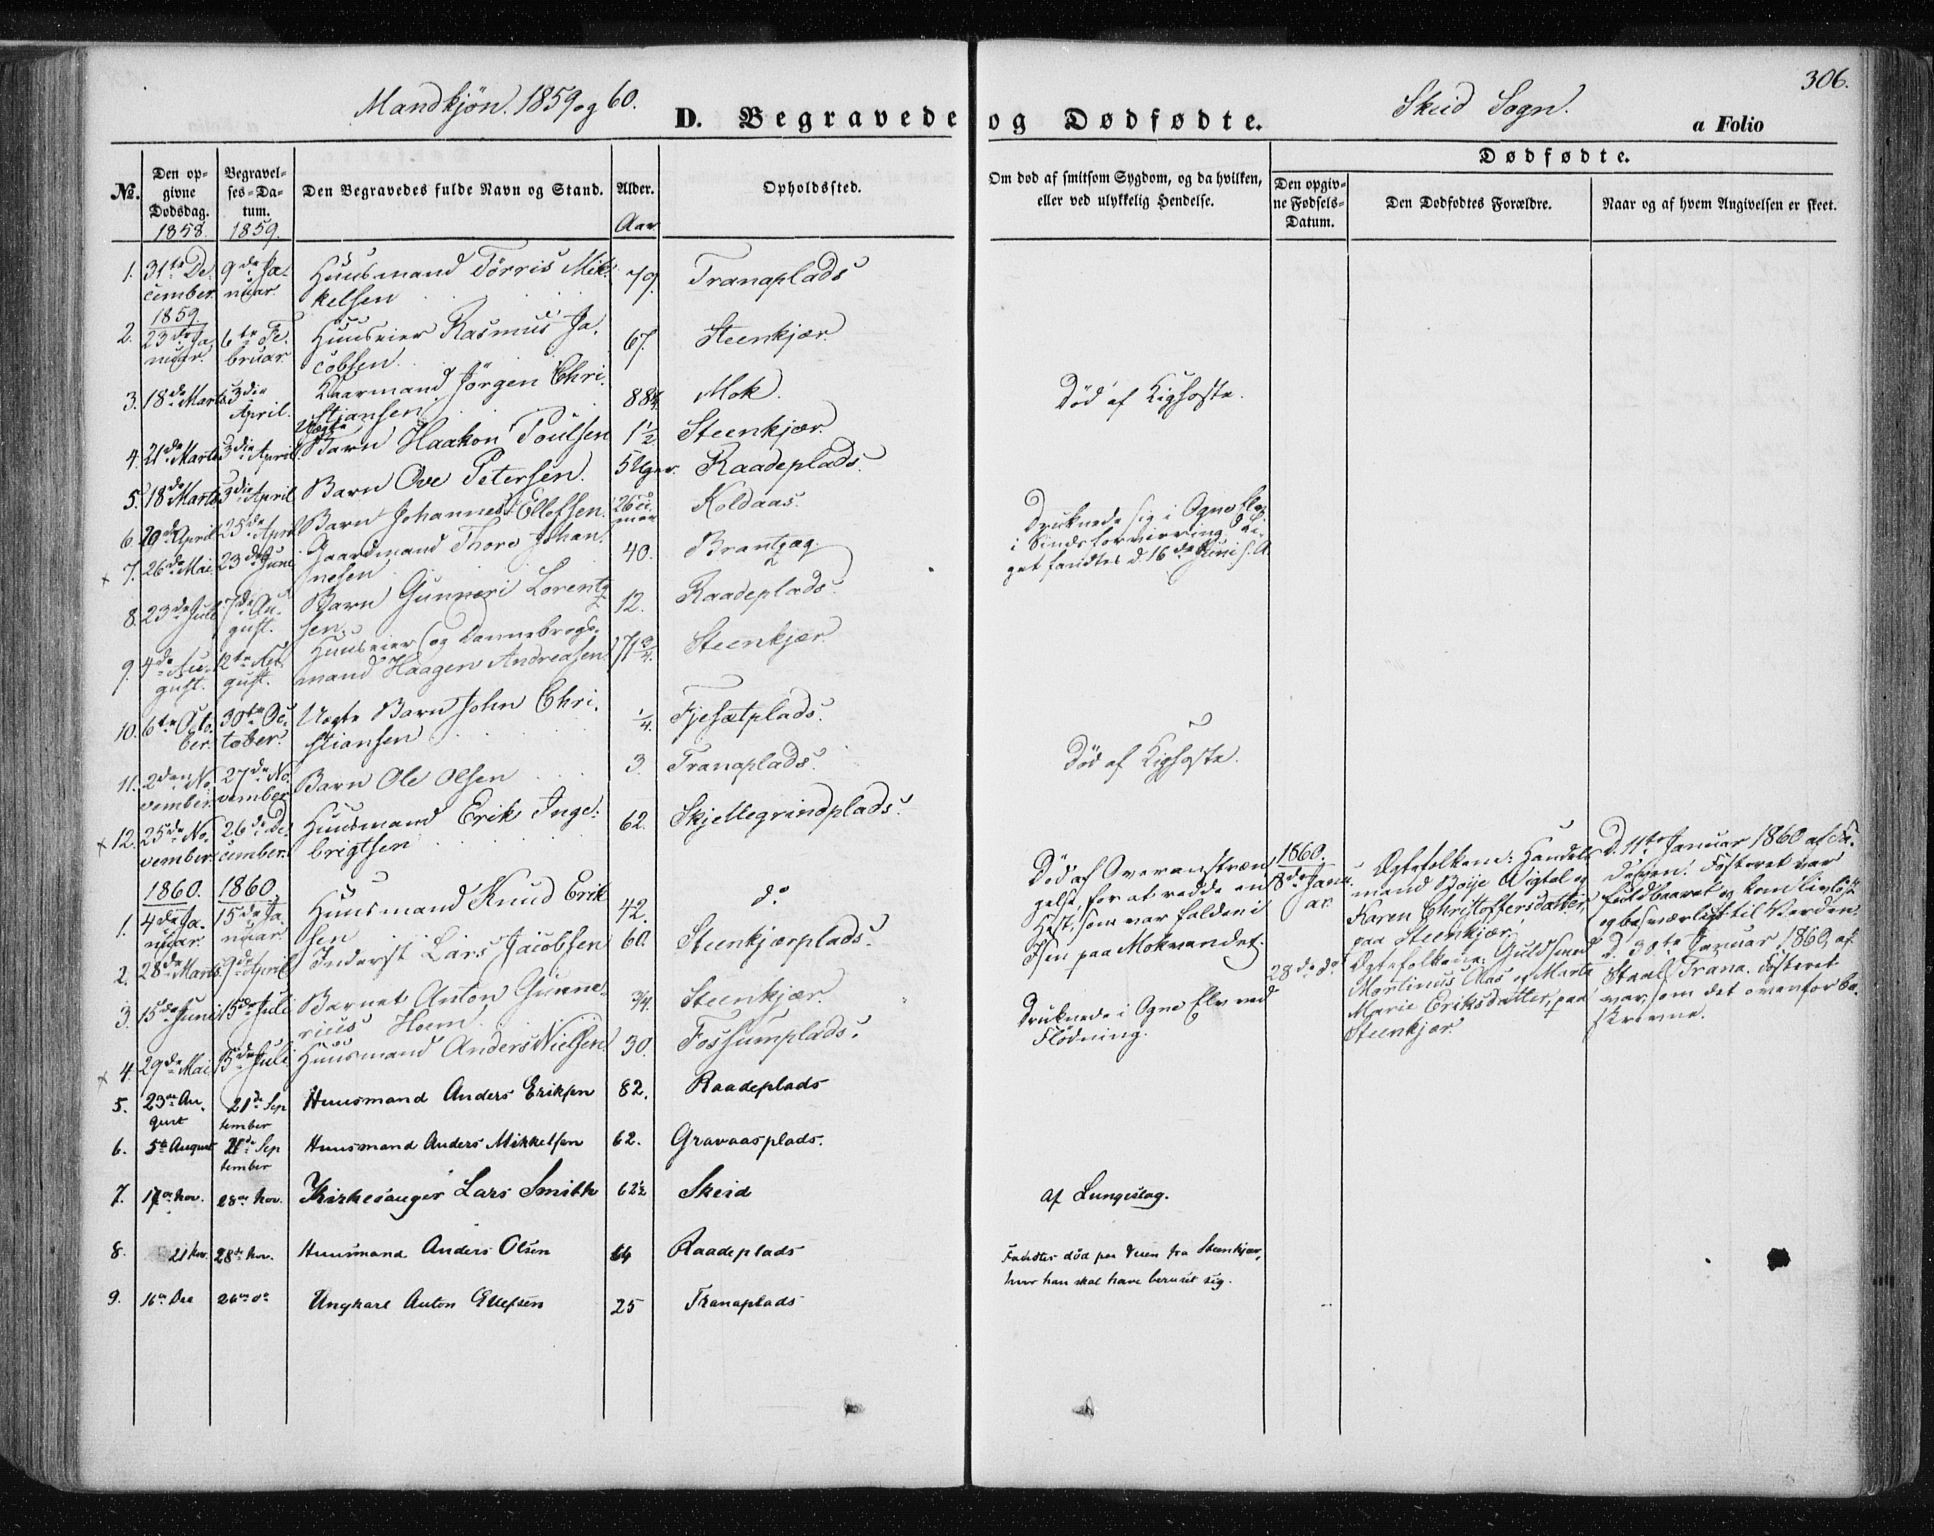 Mandkjön. 1859 og 60.
D. Begravede og Dødfødte.
Skeid Sogn.
306.
a Folio
No.
Den opgivne Dødsdag.
1858.
Begravelses-Datum.
1859.
Den Begravedes fulde Navn og Stand.
Alder.
Aar
Opholdssted.
Om død af smitsom Sygdom, og da hvilken, eller ved ulykkelig Hendelse.
Dødfødte.
Den opgivne Fødsels-Datum.
Den Dødfødtes Forældre.
Naar og af hvem Angivelsen er skeet.
1. 31te December. 9de Januar. Huusmand Törris Mikkelsen 79. Tranaplads
1859.
2. 23de Januar. 6te Februar. Huuseier Rasmus Jacobsen. 67. Steenkjær.
3. 18de Marts 3die April. Kaarmand Jörgen Christiansen Mok.
4. 21de Marts 3die April Uægte Barn Haakon Poulsen 1½ Steenkjær. Död af Kighoste.
5. 18de Marts 3die April Barn Ove Petersen. 5 Uger. Raadeplads.
6. April 25de April Barn Johannes Ellefsen. Koldaas.
x 7. 26de Mai 23de Juni Gaardmand Thore Johannesen. 40.
Druknede sig i Ogne Elv i Sindsforvirring. Liget fandtes d. 16de Juni s. A.
8. 23de Juli 7de August. Barn Gunneri Lorentzsen. 12. Raadeplads.
9. 4de August. 12te August. Huuseier og Dannebrogsmand Haagen Andreasen. 71¾. Steenkjær.
10. 6te October. 30te October. Uægte Barn John Christiansen ¼. Fjesætplads.
11. 2den November 27de November Barn Ole Olsen 3. Tranaplads. Död af Kighoste.
x 12. 25de November 26de December. Huusmand Erik Ingebrigtsen 62. Skjellegrindplads.
1860. 1860.
1. 4de Januar. 15de Januar. Huusmand Knud Eriksen 42. do
Död af Overanstrængelse, for at redde en Hest, som var falden i Isen paa Mokvandet.
2. 28de Marts 9de April Inderst Lars Jacobsen 60. Steenkjærplads.
3. 15de Juni 15de Juli Barnet Anton Gunnerius Hoem. ¾. Steenkjær.
x 4. 29de Mai 15de Juli Huusmand Anders Nielsen. 30. Fossumplads.
Druknede i Ogne Elv ved Flödning.
5. 23de August 21de September Huusmand Anders Eriksen 82. Raadeplads
6. 5te August 21de September Huusmand Anders Mikkelsen 62. Gravaasplads.
7. 17de Nov. 28de Nov. Kirkesanger Lars Smith 62½ Skeid af Lungeslag.
8. 21 Nov. 28de Nov. Huusmand Anders Olsen 64 Raadeplads
Fandtes död paa Veien fra Steenkjær, hvor han skal have beruset sig.
9. 16de Dec 26de do Ungkarl Anton Ellefsen 25 Tranaplads
1860.
8de Januar. Ægtefolkene: Handelsmand Böije Wigtel og Karen Christoffersdatter, paa Steenkjær.
D. 11te Januar 1860 af Faderen. Fosteret var fuldbaaret og kom livlöst og besværligt til Verden.
28de do Ægtefolkene: Guldsmed Martinus Aas og Marte Marie Eriksdatter, paa Steenkjær
d. 30te Januar 1860, af Trana. Fosteret var som det ovenfor beskrevne.